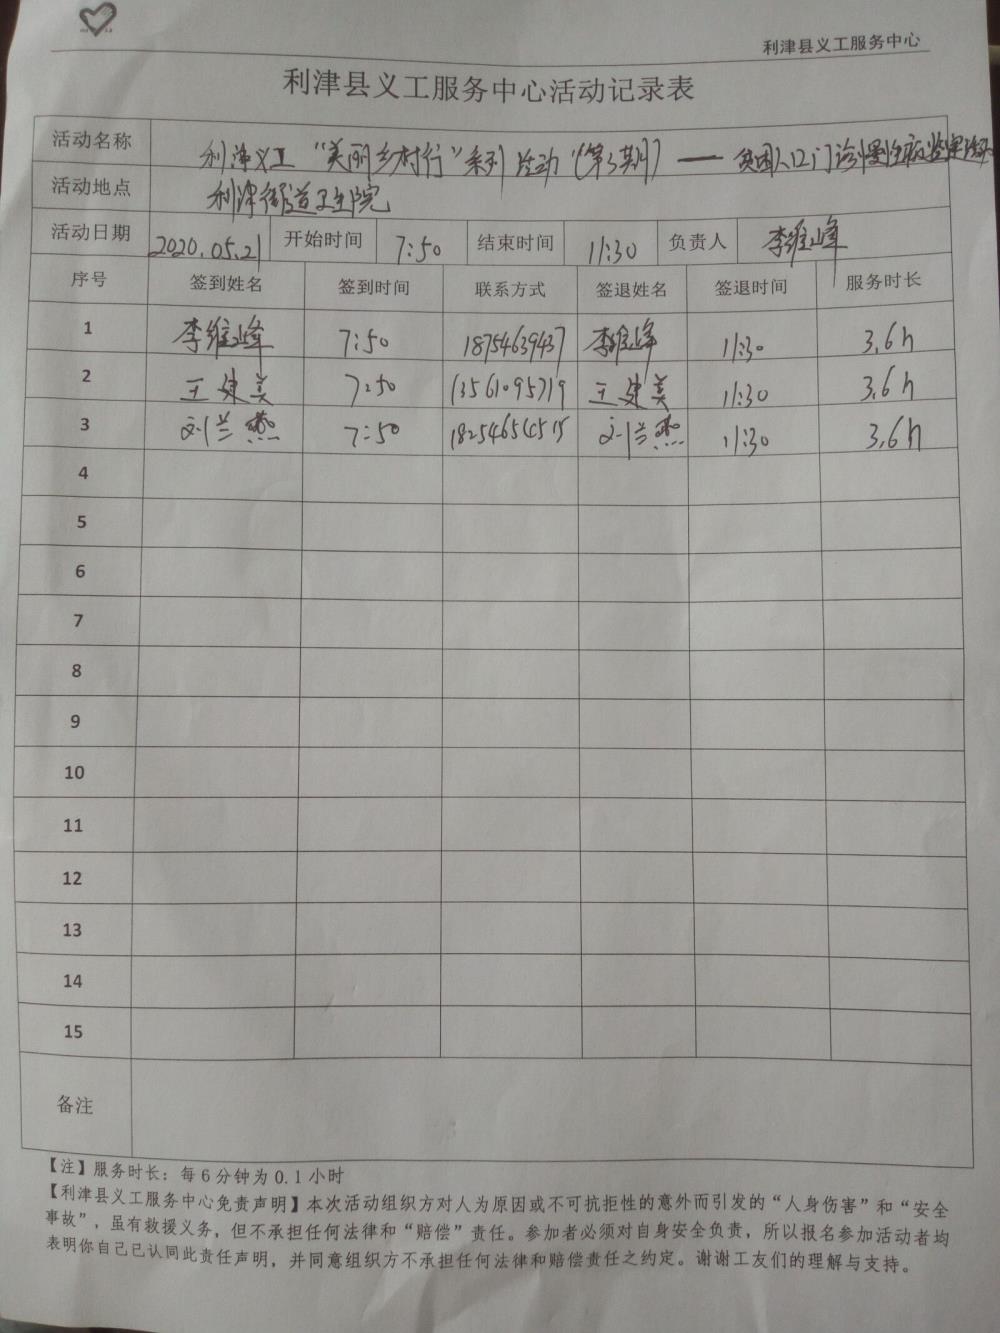 利津县义工服务中心
利津县义工服务中心活动记录表
活动名称 利津义工“美丽乡村行”系列活动（第3期）——贫困人口门诊慢性病鉴定
活动地点 利津街道卫生院
活动日期 2020.05.21 开始时间 7:50 结束时间 11:30 负责人 李维峰
序号 签到姓名 签到时间 联系方式 签退姓名 签退时间 服务时长
1 李维峰 7:50 18754639437 李维峰 11:30 3.6h
2 王建美 7:50 13561095719 王建美 11:30 3.6h
3 刘兰燕 7:50 18254654515 刘兰燕 11:30 3.6h
4
5
6
7
8
9
10
11
12
13
14
15
备注
【注】服务时长：每6分钟为0.1小时
【利津县义工服务中心免责声明】本次活动组织方对人为原因或不可抗拒性的意外而引发的“人身伤害”和“安全
事故”，虽有救援义务，但不承担任何法律和“赔偿”责任。参加者必须对自身安全负责，所以报名参加活动者均
表明你自己已认同此责任声明，并同意组织方不承担任何法律和赔偿责任之约定。谢谢工友们的理解与支持。